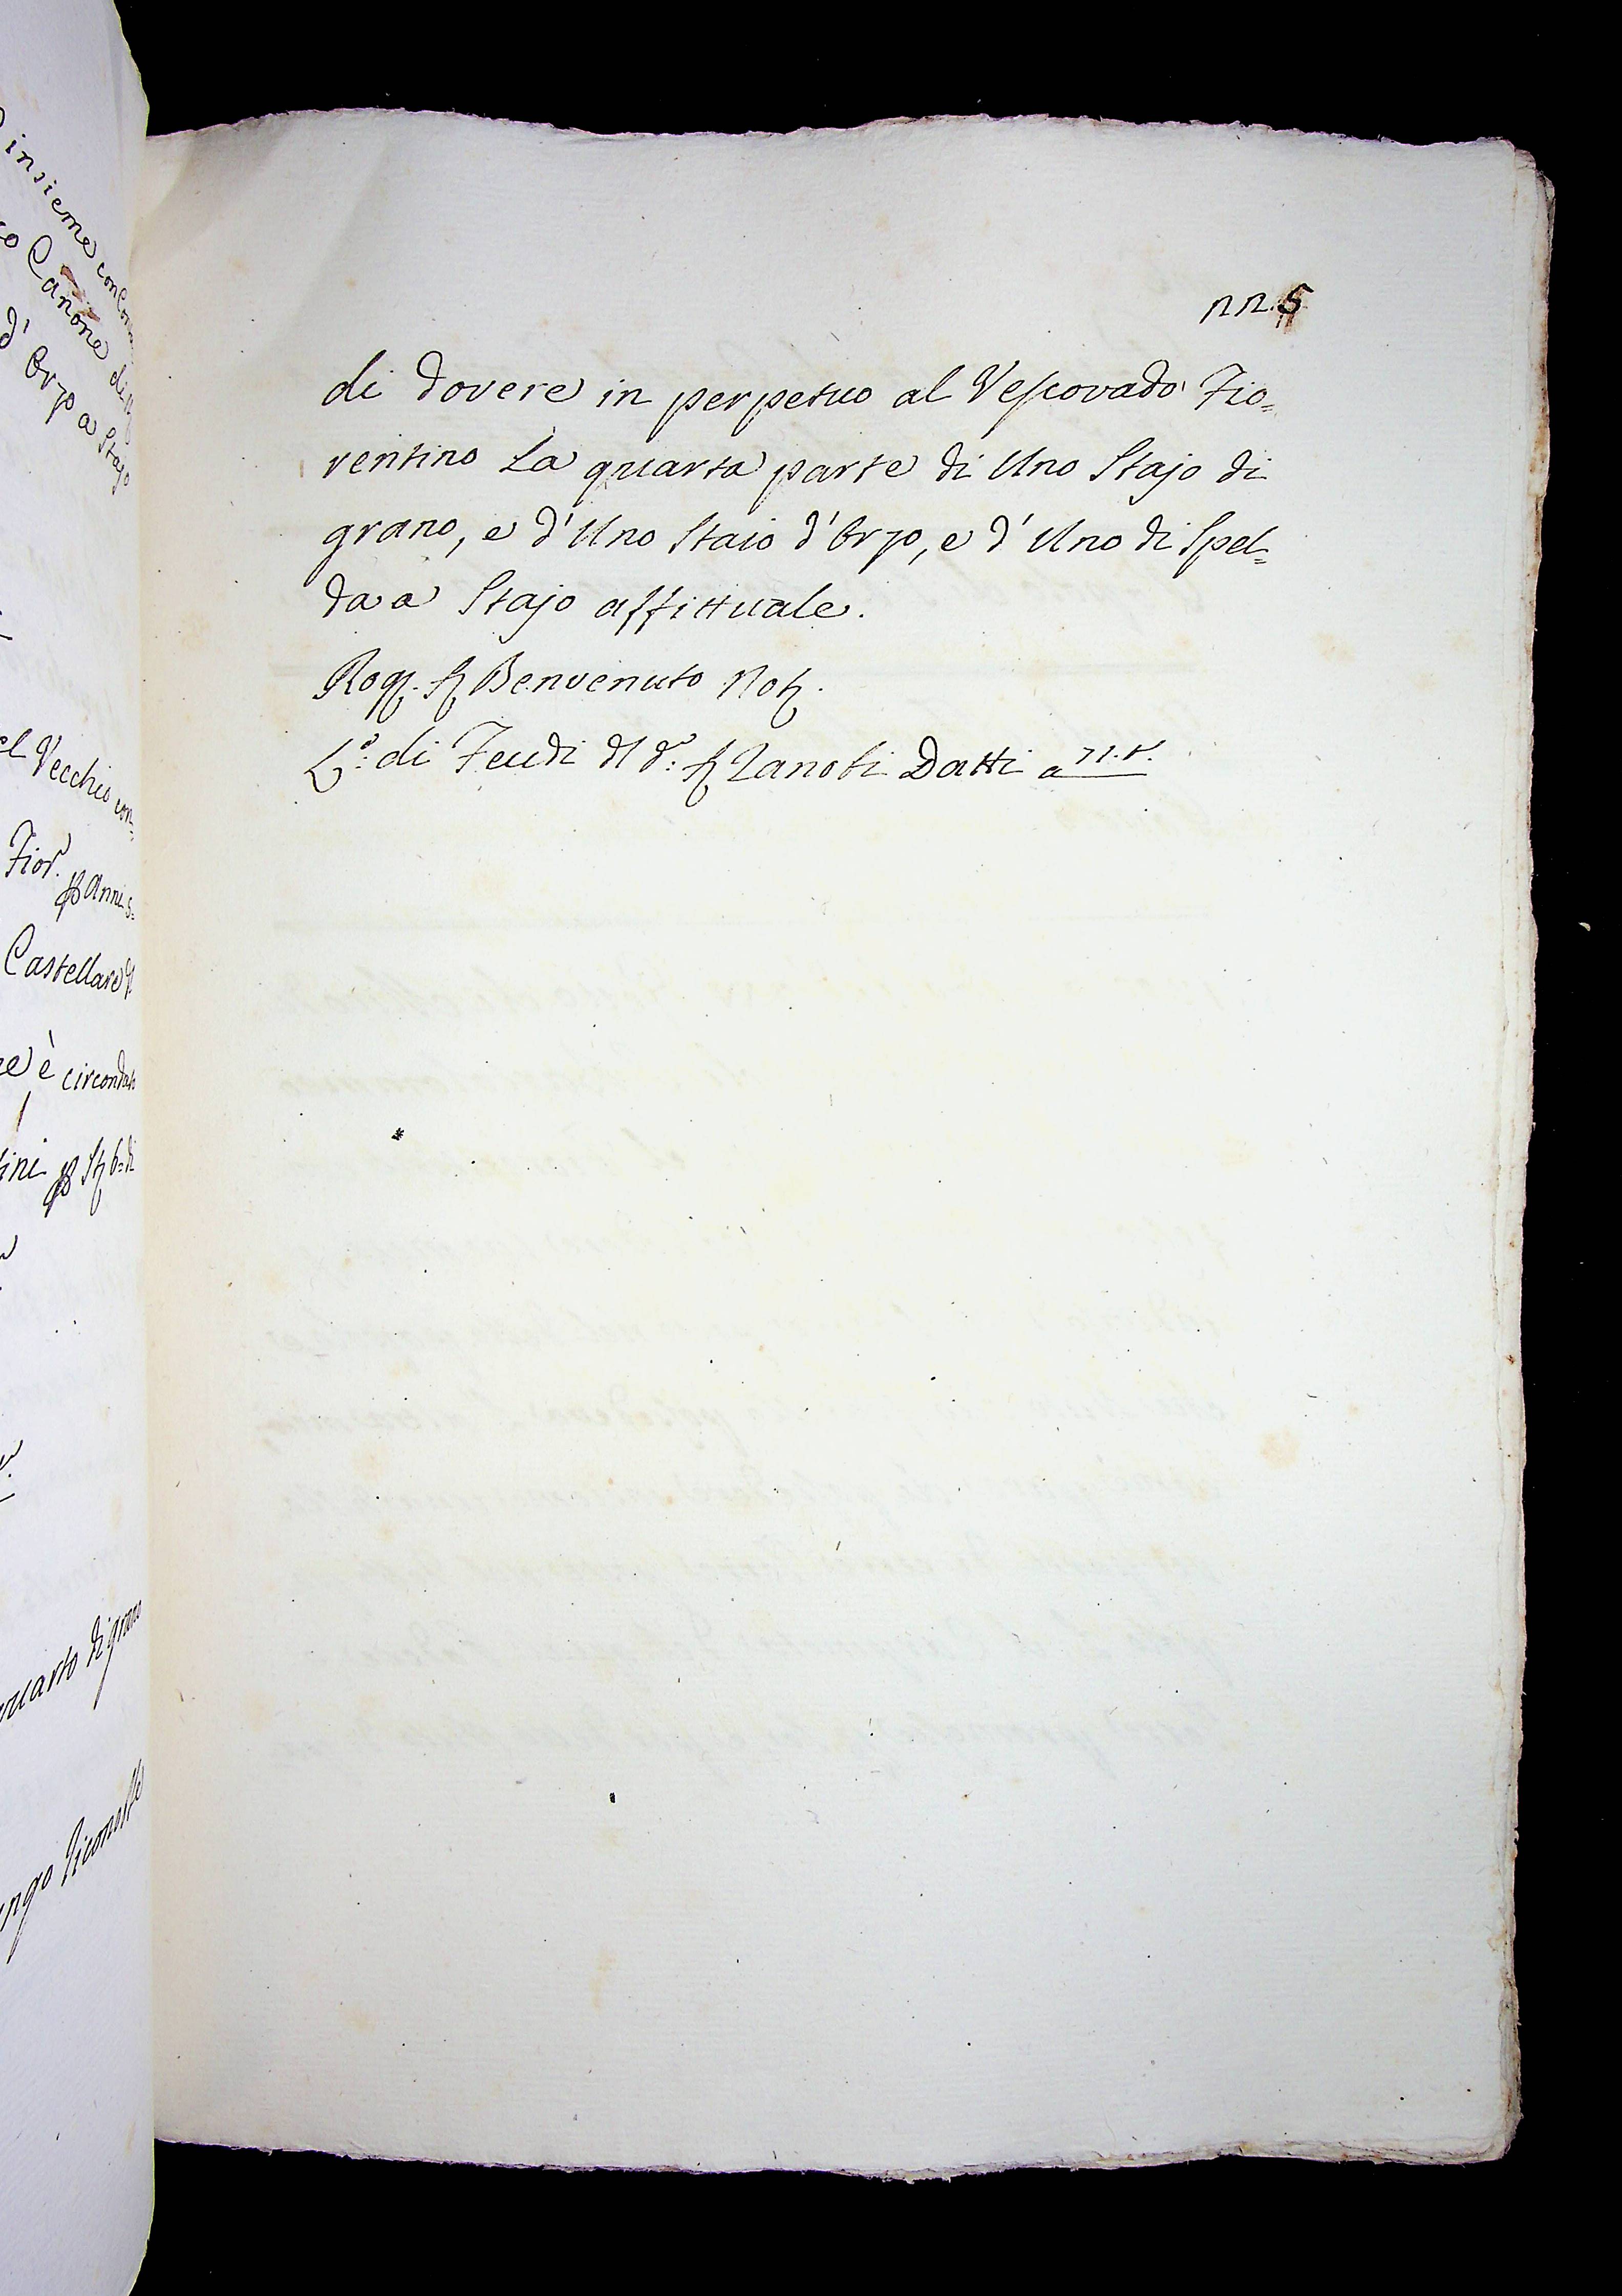 insieme con
Canone di
d' Orzo a Stajo
Vecchio con=
Fior.
Anni
Castellare
è circondato
di grano
nn. 5
di dovere in perpetuo al Vescovado Fio=
rentino La quarta parte di Uno Stajo di
grano, e d' Uno Staio d' Orzo, e d' Uno di Spel=
da a Stajo affittuale.
Rog. Benvenuto Not.
di Feudi Zanobi Datti a